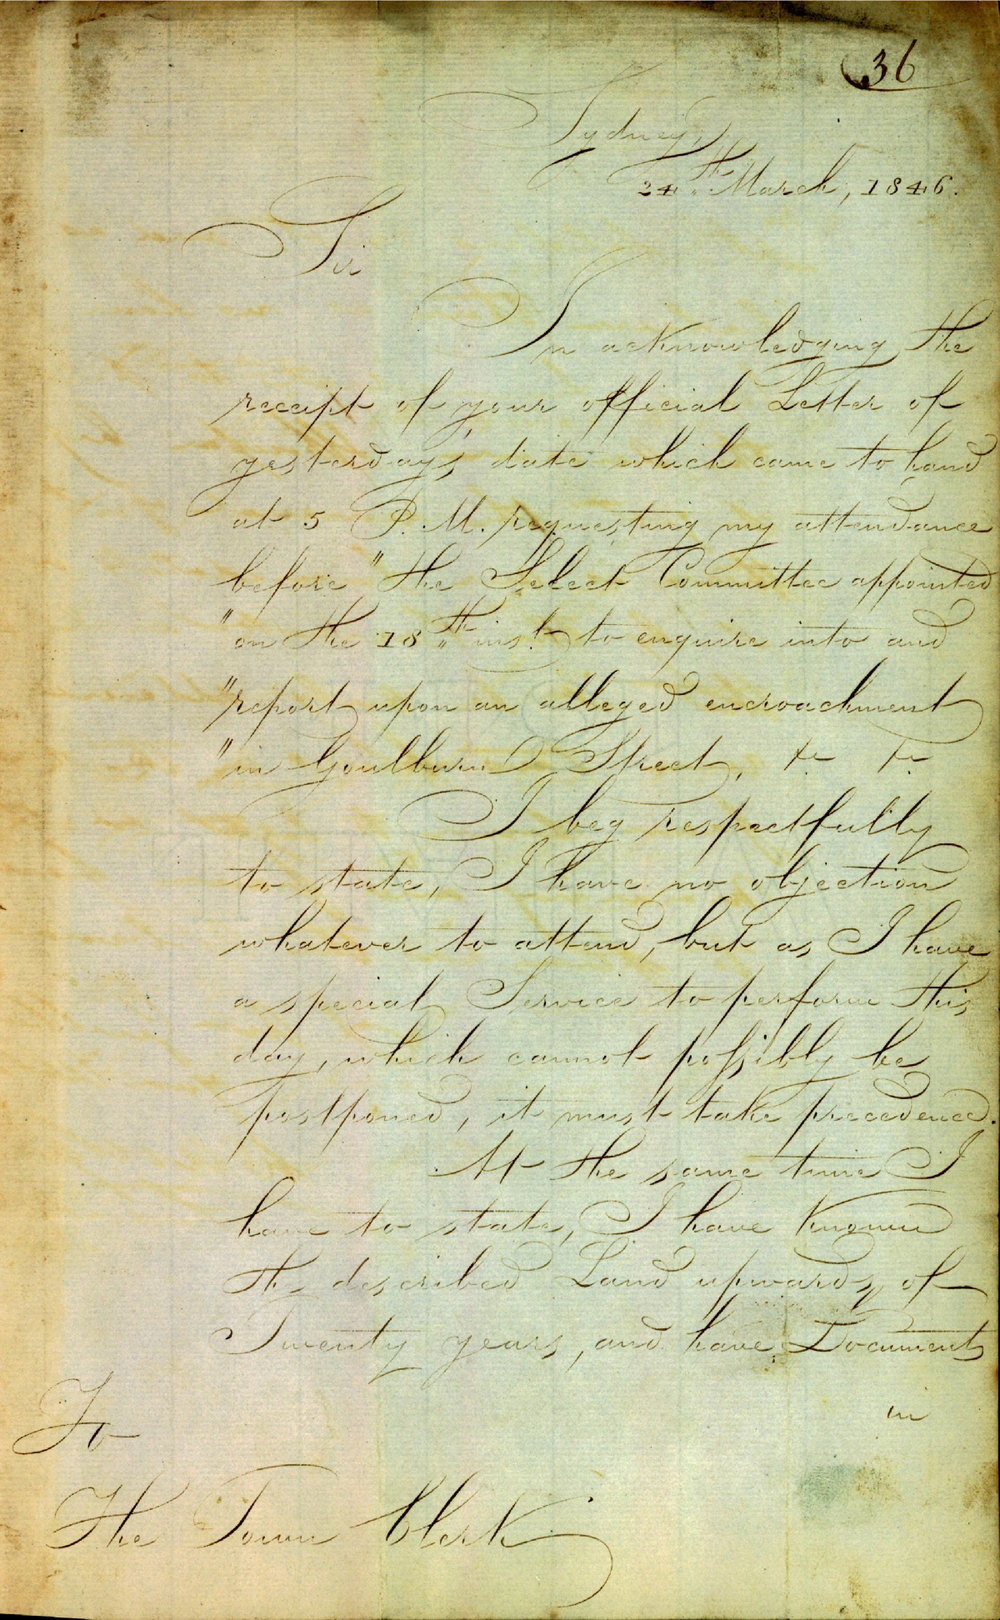 36
Sydney,
24th March, 1846.
Sir
In acknowledging the
receipt of your official Letter of
yesterdays date which came to hand
at 5 P.M. requesting my attendance
before "the Select Committee appointed
"on the 18th inst. to enquire into and
"report upon an alleged encroachment
"in Goulburn Street, &c &c
I beg respectfully
to state, I have no objection
whatever to attend, but as I have
a special Service to perform this
day, which cannot possibly be
postponed, it must take precedence.
At the same time I
have to state, I have known
the described Land upwards of
Twenty years, and have Documents
in
To
The Town Clerk